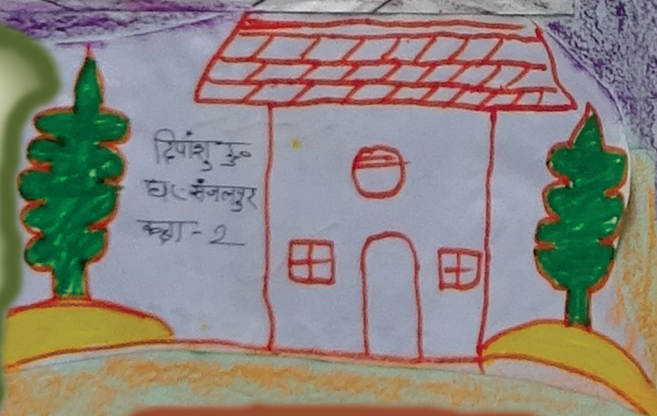 दिपांशु कु॰
घर-संजलपुर
कक्षा - 2